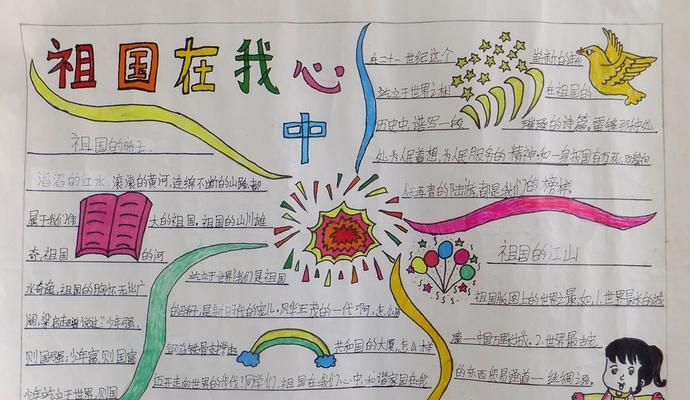 祖国在我心中
祖国的骄子
滔滔的江水,滚滚的黄河,连绵不断的山路,都
属于我们伟大的祖国,祖国的山川雄
奇,祖国的河
水奇逸,祖国的胸怀无比广
阔,梁启超曾说过"少年强,
则国强,少年富,则国富
少年屹立于世界,则国
站立于世界,我们是祖国
的骄子,是新时代的宠儿,风华正茂的一代啊,怎么
共和国的大厦,怎么
迈开走向世界的步伐?同学们,祖国在我们心中,和谐家园在我
在二十一世纪这个崭新的
站立于世界之林在祖国的
历史中,谱写一段璀璨的诗篇,雷锋那种处
处为人民着想,为人民服务的精神和一身
是我们的榜样
祖国的江山
祖国版图上的世界之最如,1.世界最长的城
墙—中国万里长城,2.世界最古老
的东西贸易通道——丝绸之路,